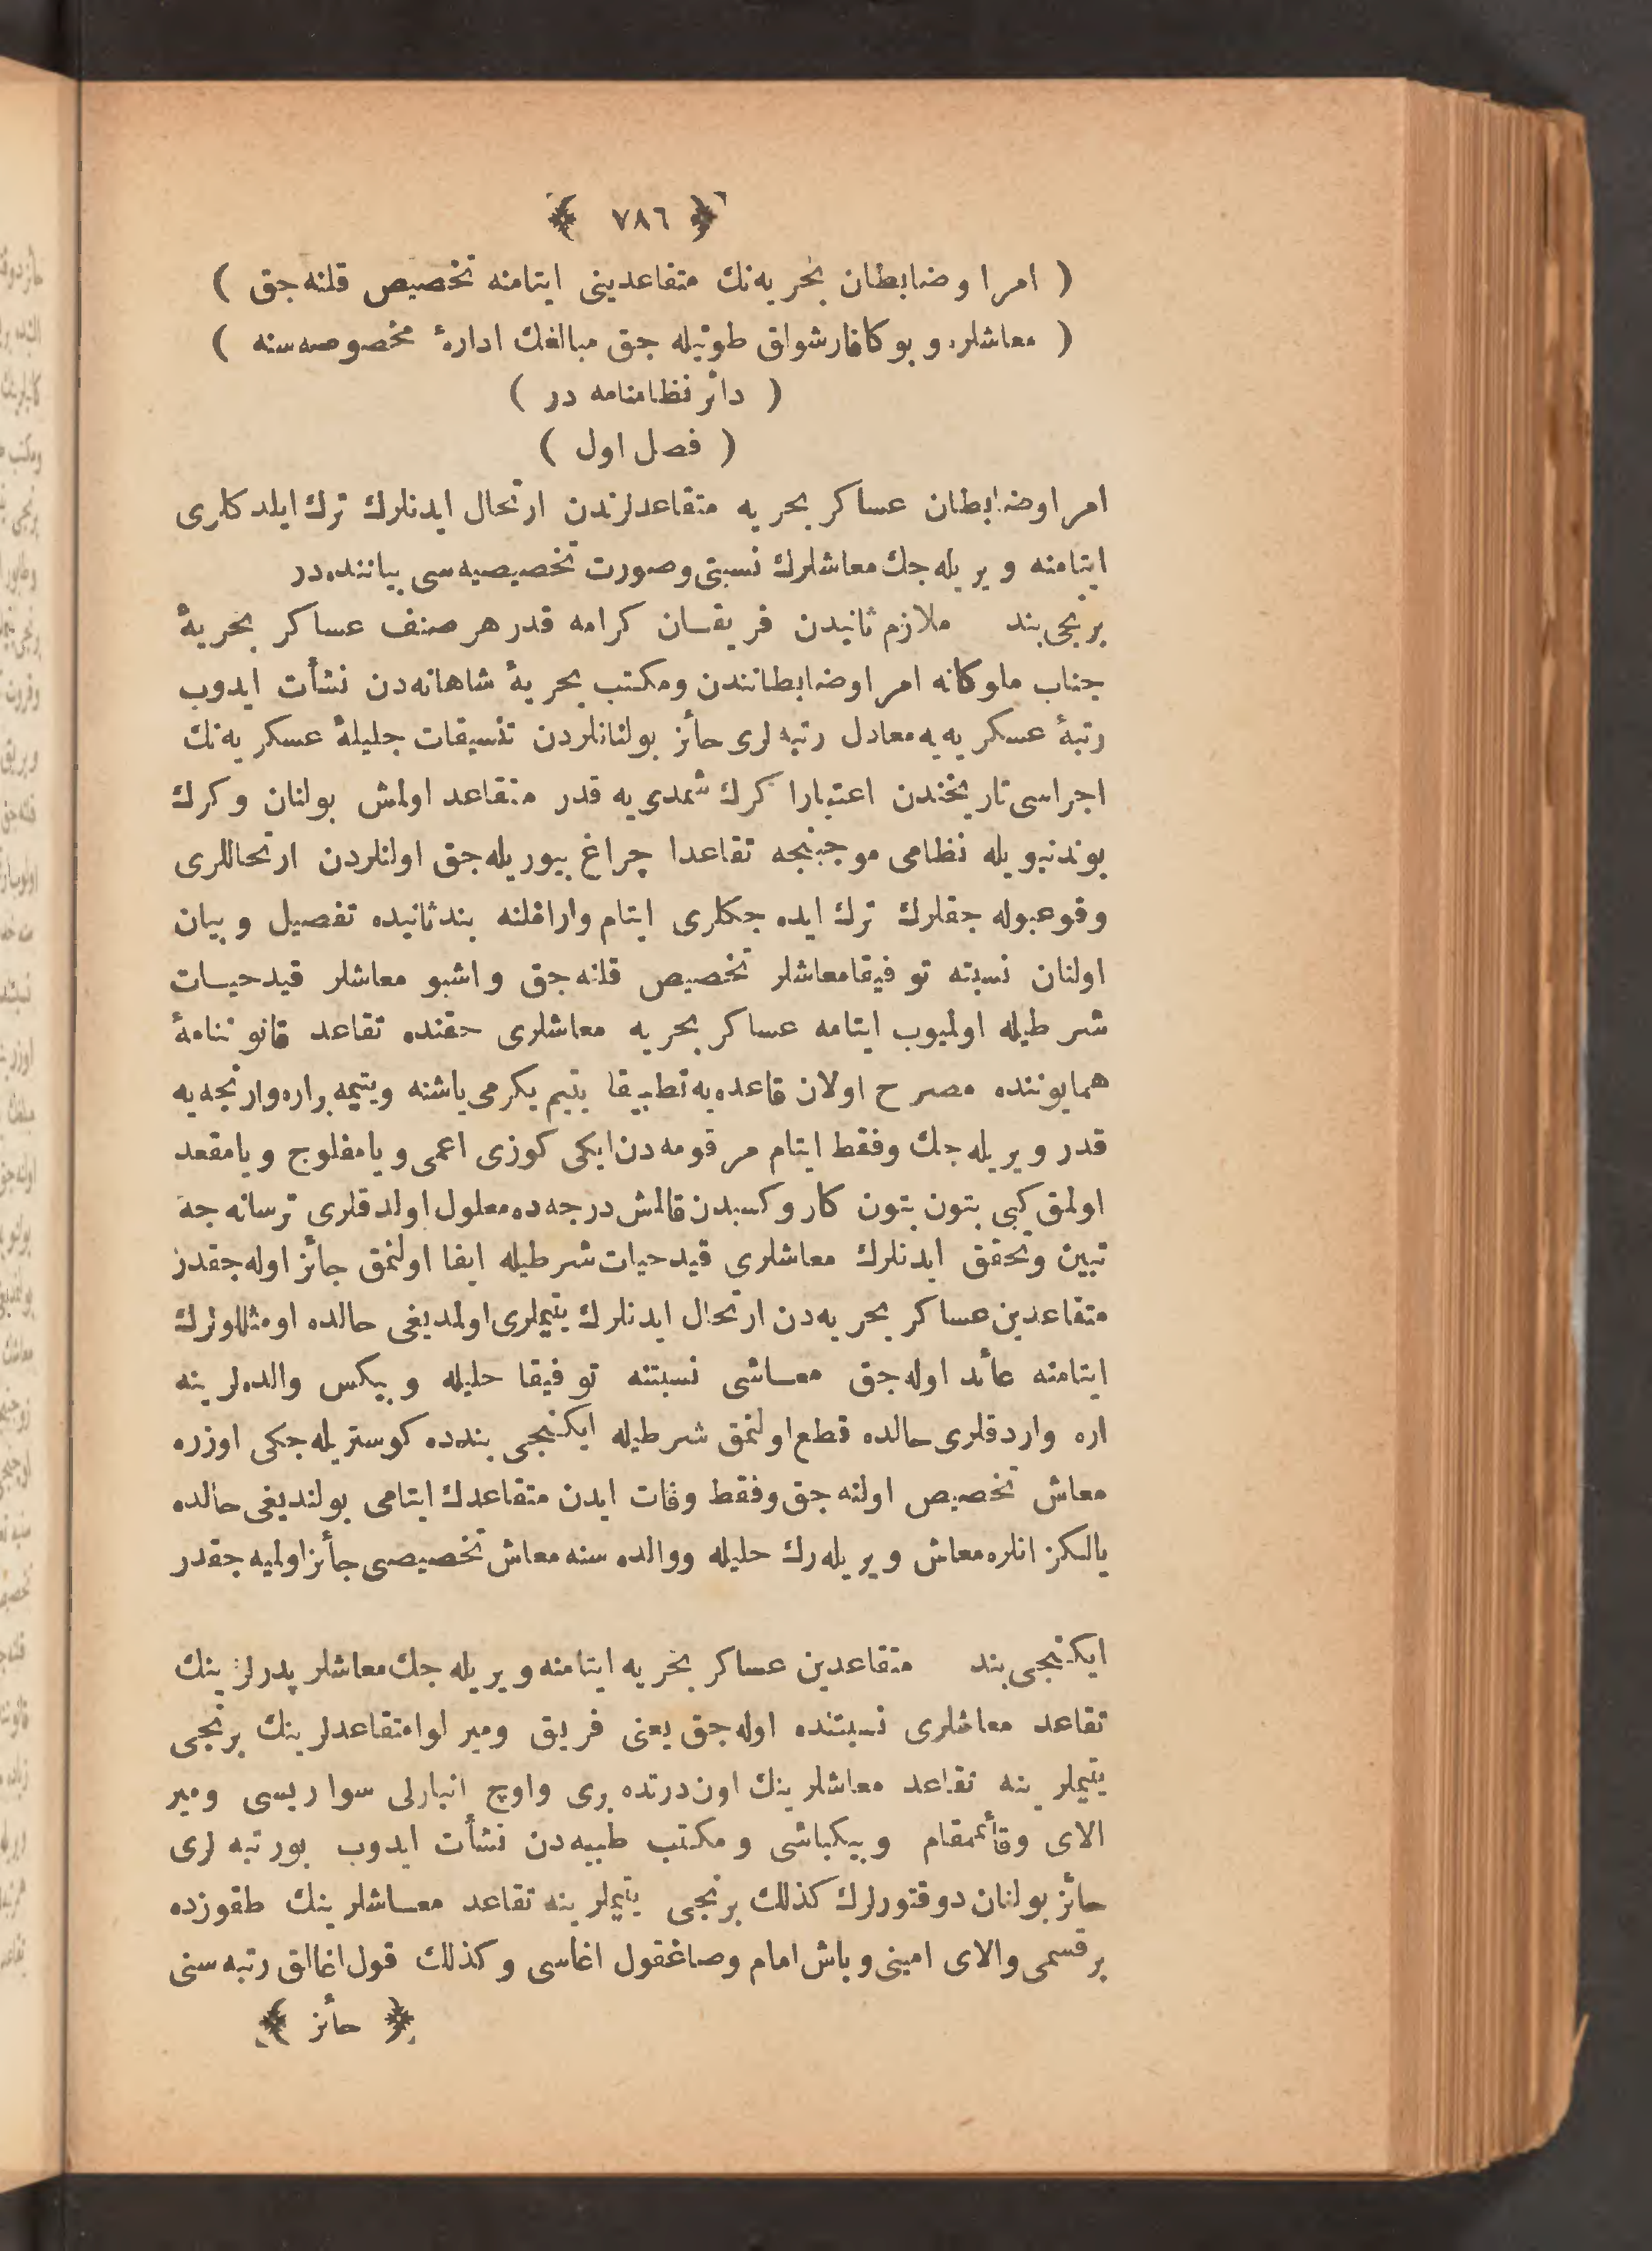 ﴿ ٧٨٦ ﴾
( امرا وضابطان بحریه‌نك متقاعدینی ایتامنه تخصیص قلنه‌جق )
( معاشلره و بوکاقارشولق طوتیله جق مبالغك ادارهٔ مخصوصه‌سنه )
( دائر نظامنامه در )
( فصل اول )
امرا وضابطان عساکر بحریه متقاعدلرندن ارتحال ایدنلرك ترك ایلدکلری
ایتامنه ویریله‌جك معاشلرك نسبتی وصورت تخصیصیه‌سی بیاننده‌در
برنجی بند ملازم ثانیدن فریقان کرامه قدر هر صنف عساکر بحریهٔ
جناب ملوکانه امرا وضابطانندن ومکتب بحریهٔ شاهانه‌دن نشأت ایدوب
رتبهٔ عسکریه‌یه معادل رتبه‌لری حائز بولنانلردن تنسیقات جلیلهٔ عسکریه‌نك
اجراسی تاریخندن اعتبارا کرك شمدی‌یه قدر متقاعد اولمش بولنان وکرك
بوندنبویله نظامی موجبنجه تقاعدا چراغ بیوریله‌جق اولنلردن ارتحاللری
وقوعبوله جقلرك ترك ایده جکلری ایتام واراملنه بندثانیده تفصیل و بیان
اولنان نسبته توفیقامعاشلر تخصیص قلنه‌جق واشبو معاشلر قیدحیات
شرطیله اولمیوب ایتامه عساکر بحریه معاشلری حقنده تقاعد قانوننامهٔ
همایوننده مصرح اولان قاعده‌یه تطبیقا یتیم یکرمی یاشنه ویتیمه‌براره‌وارنجه‌یه
قدر ویریله‌جك وفقط ایتام مرقومه‌دن‌ایکی کوزی اعمی ویامفلوج ویامقعد
اولمق کبی بتون بتون کار وکسبدن قالمش درجه‌ده معلول اولدقلری ترسانه‌جه
تبین وتحقق ایدنلرك معاشلری قیدحیات شرطیله ایفا اولنمق جائز اوله‌جقدر
متقاعدین عساکر بحریه‌دن ارتحال ایدنلرك یتیملری اولمدیغی حالده اومثللولرك
ایتامنه عائد اوله‌جق معاشی نسبتنه توفیقا حلیله و بیکس والده‌لرینه
اره واردقلری حالده قطع اولنمق شرطیله ایکنجی بندده کوستریله‌جکی اوزره
معاش تخصیص اولنه‌جق وفقط وفات ایدن متقاعدك ایتامی بولندیغی حالده
یالکز انلره معاش ویریله‌رك حلیله ووالده سنه معاش تخصیصی جائزاولمیه‌جقدر
ایکنجی بند متقاعدین عساکر بحریه ایتامنه ویریله‌جك معاشلر پدرلرینك
تقاعد معاشلری نسبتنده اوله‌جق یعنی فریق ومیرلوامتقاعدلرینك برنجی
یتیملرینه تقاعد معاشلرینك اون‌درتده بری واوچ انبارلی سواریسی ومیر
الای وقائممقام وبیکباشی ومکتب طبیه‌دن نشأت ایدوب بورتبه لری
حائز بولنان دوقتورلرك کذلك برنجی یتیملرینه تقاعد معاشلرینك طقوزده
برقسمی والای امینی وباش امام وصاغقول اغاسی وکذلك قول‌اغالق رتبه‌سنی
﴿ حائز ﴾